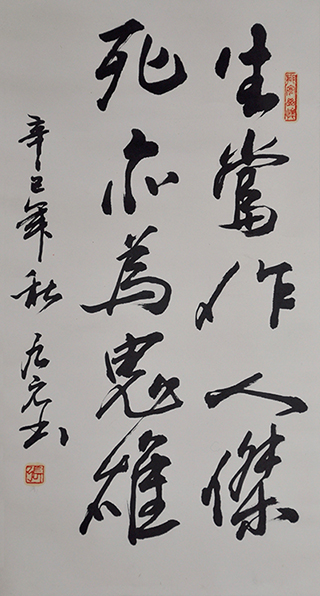 生當作人傑
死亦為鬼雄
辛巳年秋